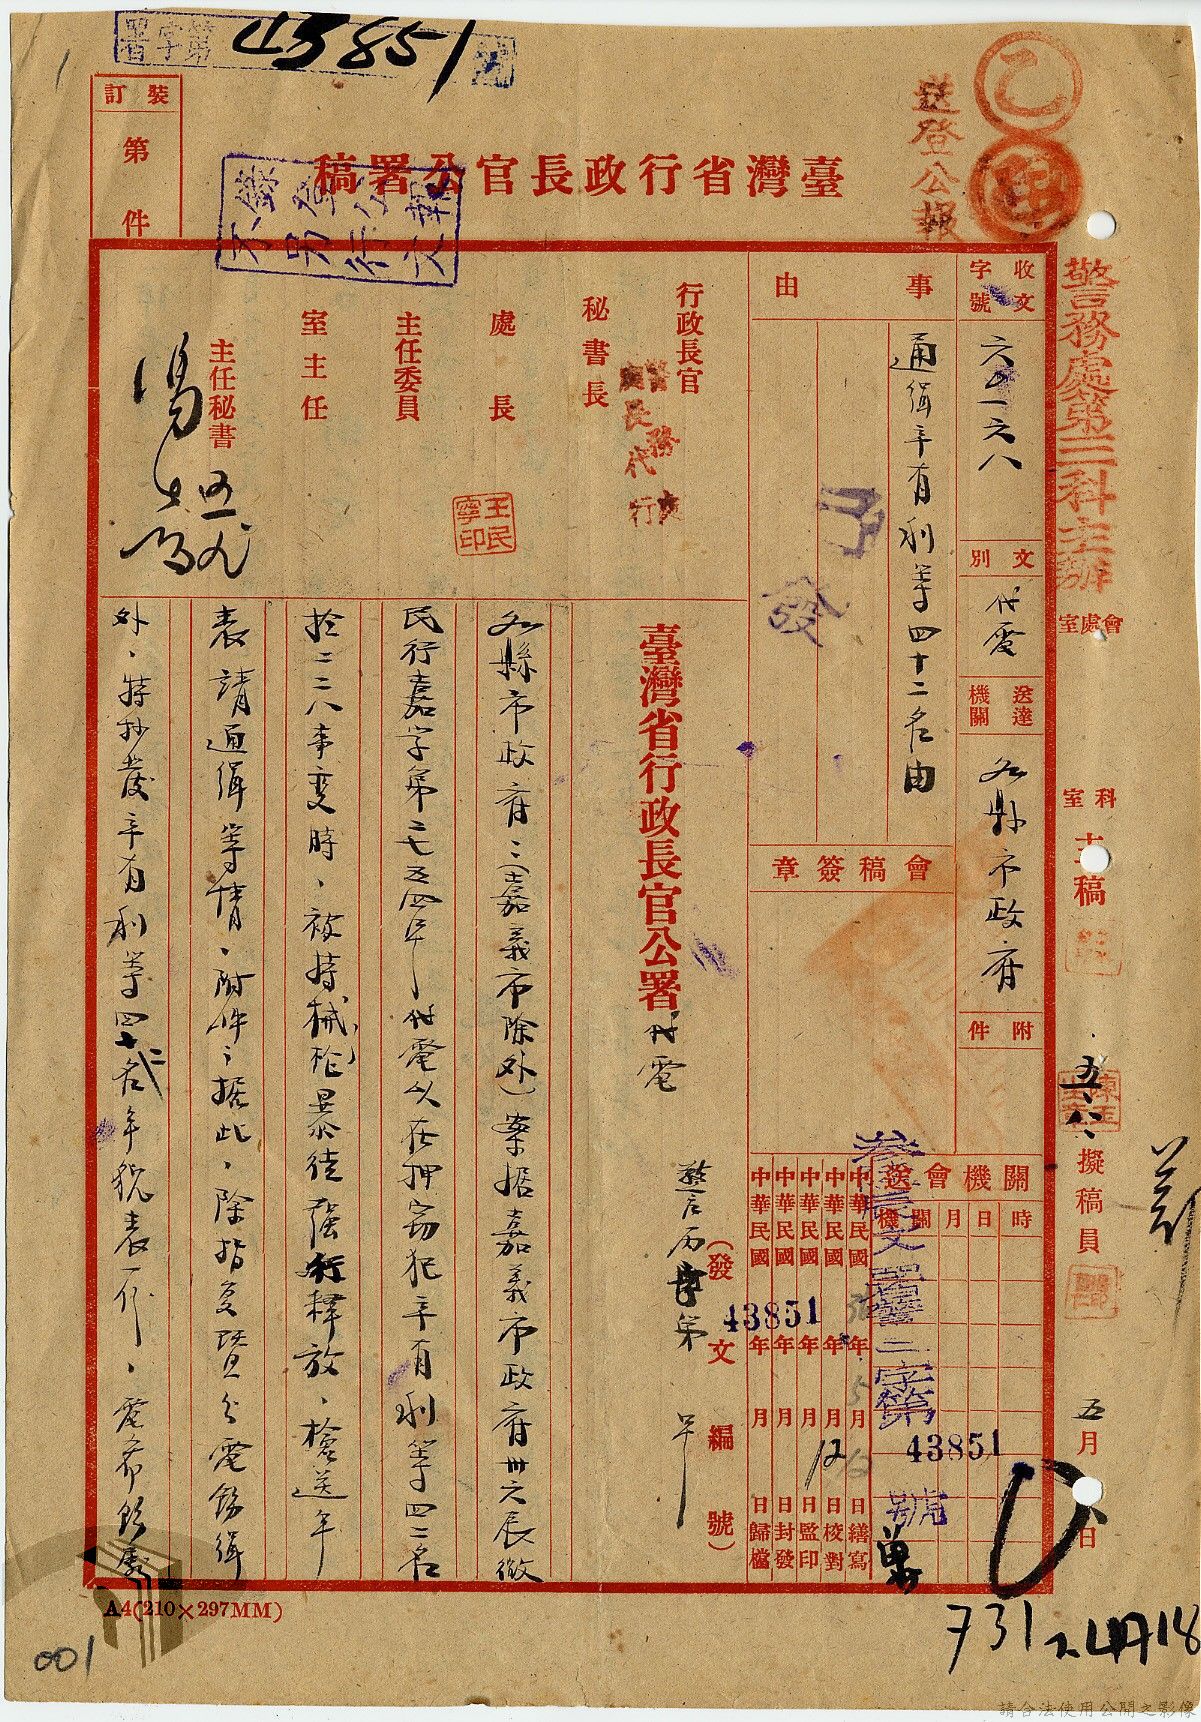 第字署
43851
號
乙
送登公報
裝訂
第
件
臺灣省行政長官公署稿
錄登公報
不另行文
警務處第三科主辦
會處室
科室
主稿
五、八、
擬稿員
五月
日
收文
字號
六五一六八
文別
代電
送達機關
各縣市政府
附件
事由
通緝辛有利等四十二名由
發
會稿簽章
關機會送
時日月關機
參
署警二字第
43851
號
中華民國36年5月12日繕寫
中華民國年月12日校對
中華民國年月日監印
中華民國年月日封發
中華民國年月日歸檔
行政長官
警務處
處長代行
秘書長
處長
王民寧印
主任委員
室主任
主任秘書
(發文編號)
43851
臺灣省行政長官公署代電
各縣市政府:(嘉義市除外)案據嘉義市政府卅六辰微
民行嘉字第二七五四號代電以在押竊犯辛有利等四二名
於二二八事變時、被持械、暴徒強行釋放、檢送年
表請通緝等情、附件、據此、除指复暨分電飭緝
外、特抄發辛有利等四十二名年貌表一份、電希飭屬
A4(210×297MM)
001
731
請合法使用公開之影像